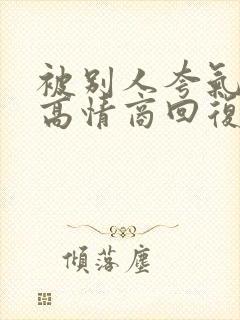 被别人夸氣
高情商回復
傾落塵